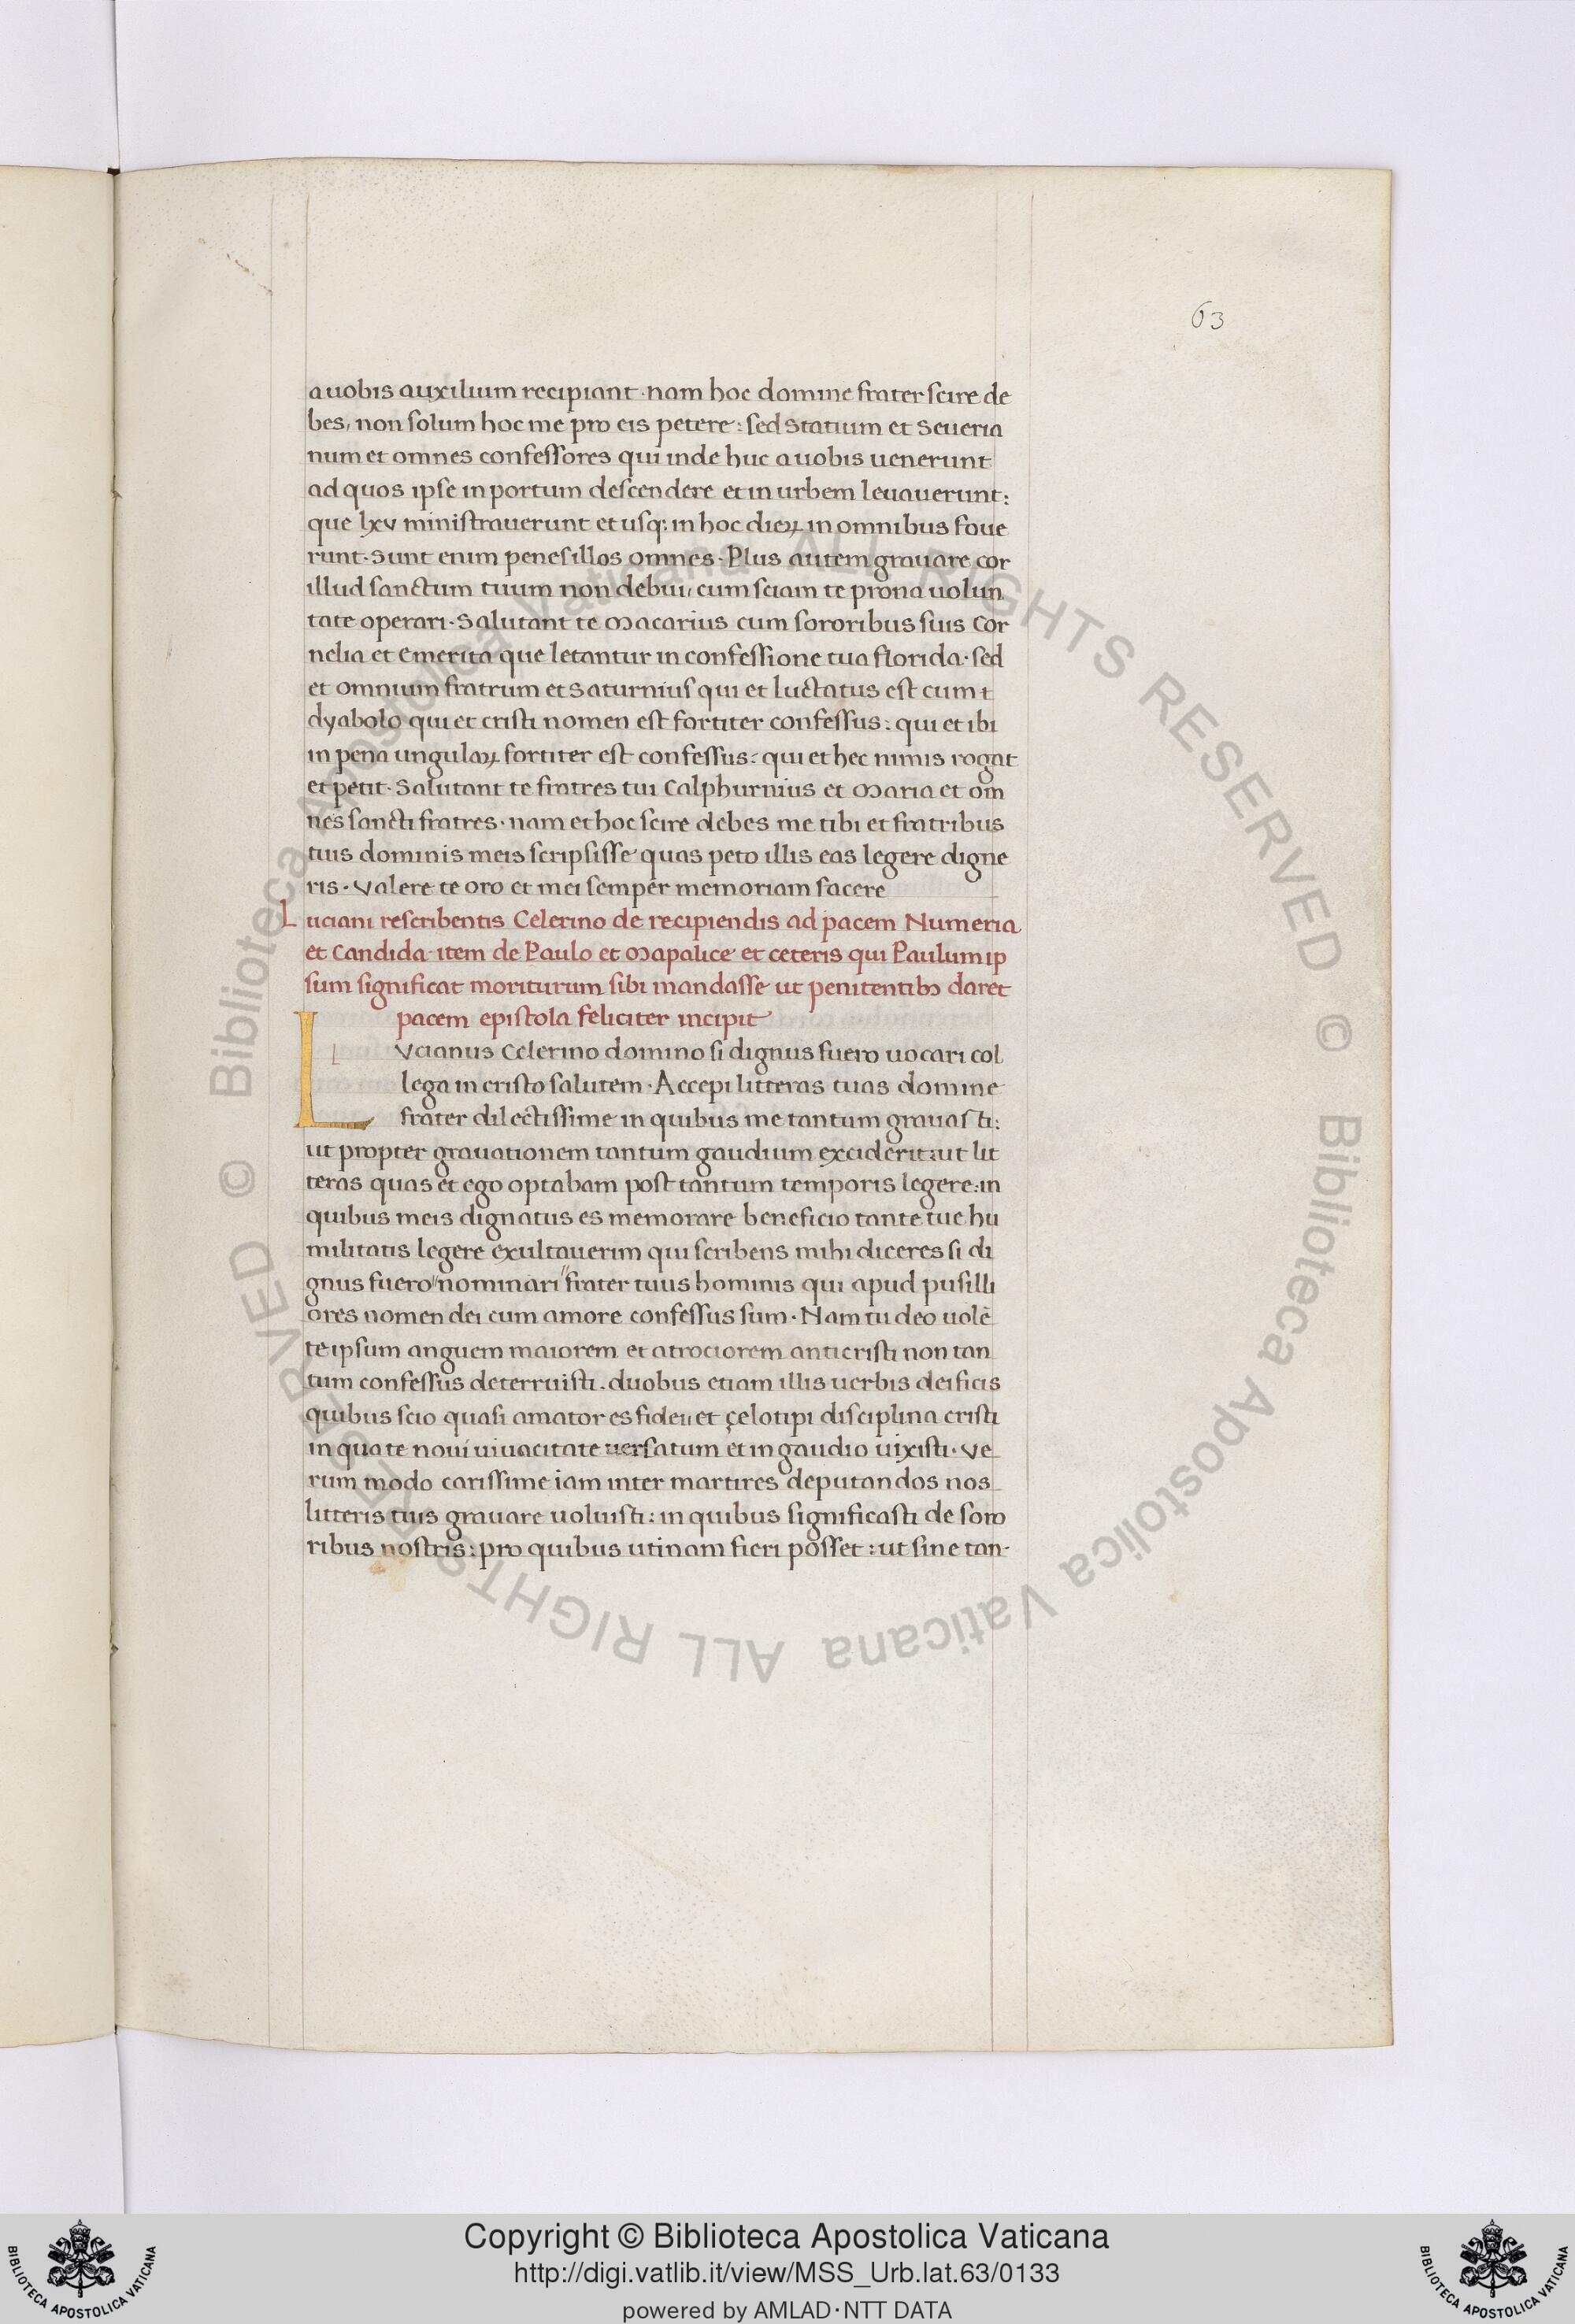 63
a uobis auxilium recipiant · nam hoc domine frater scire de
bes, non solum hoc me pro eis petere : sed Statium et Seueria
num et omnes confessores qui inde huc a uobis uenerunt
ad quos ipse in portum descendere et in urbem leuauerunt :
que lxv ministrauerunt et usq; in hoc dieꝝ in omnibus foue
runt · Sunt enim penes illos omnes · Plus autem grauare cor
illud sanctum tuum non debui, cum sciam te prona uolun
tate operari · Salutant te Macarius cum sororibus suis Cor
nelia et Emerita que letantur in confessione tua florida · sed
et omnium fratrum et Saturnius qui et luctatus est cum t
dyabolo qui et cristi nomen est fortiter confessus : qui et ibi
in pena ungulaꝝ fortiter est confessus : qui et hec nimis rogat
et petit · Salutant te fratres tui Calphurnius et Maria et om
nes sancti fratres · nam et hoc scire debes me tibi et fratribus
tuis dominis meis scripsisse quas peto illis eas legere digne
ris · Valere te oro et mei semper memoriam facere
Luciani rescribentis Celerino de recipiendis ad pacem Numeria
et Candida · item de Paulo et Mapalice et ceteris qui Paulum ip
sum significat moriturum sibi mandasse ut penitentibꝫ daret
pacem epistola feliciter incipit
L Vcianus Celerino domino si dignus fuero uocari col
lega in cristo salutem · Accepi litteras tuas domine
frater dilectissime in quibus me tantum grauasti :
ut propter grauationem tantum gaudium exciderit : ut lit
teras quas et ego optabam post tantum temporis legere : in
quibus meis dignatus es memorare beneficio tante tue hu
militatis legere exultauerim qui scribens mihi diceres si di
gnus fuero" nominari "frater tuus hominis qui apud pusilli
ores nomen dei cum amore confessus sum · Nam tu deo uolē
te ipsum anguem maiorem et atrociorem anticristi non tan
tum confessus deterruisti . duobus etiam illis uerbis deificis
quibus scio quasi amator es fidei, et çelotipi disciplina cristi
in qua te noui uiuacitate uersatum et in gaudio uixisti · Ve
rum modo carissime iam inter martires deputandos nos
litteris tuis grauare uoluisti : in quibus significasti de soro
ribus nostris : pro quibus utinam fieri posset : ut sine tan-
© Biblioteca Apostolica Vaticana ALL RIGHTS RESERVED © Biblioteca Apostolica Vaticana ALL RIGHTS RESERVED
BIBLIOTECA APOSTOLICA VATICANA
Copyright © Biblioteca Apostolica Vaticana
http://digi.vatlib.it/view/MSS_Urb.lat.63/0133
powered by AMLAD·NTT DATA
BIBLIOTECA APOSTOLICA VATICANA